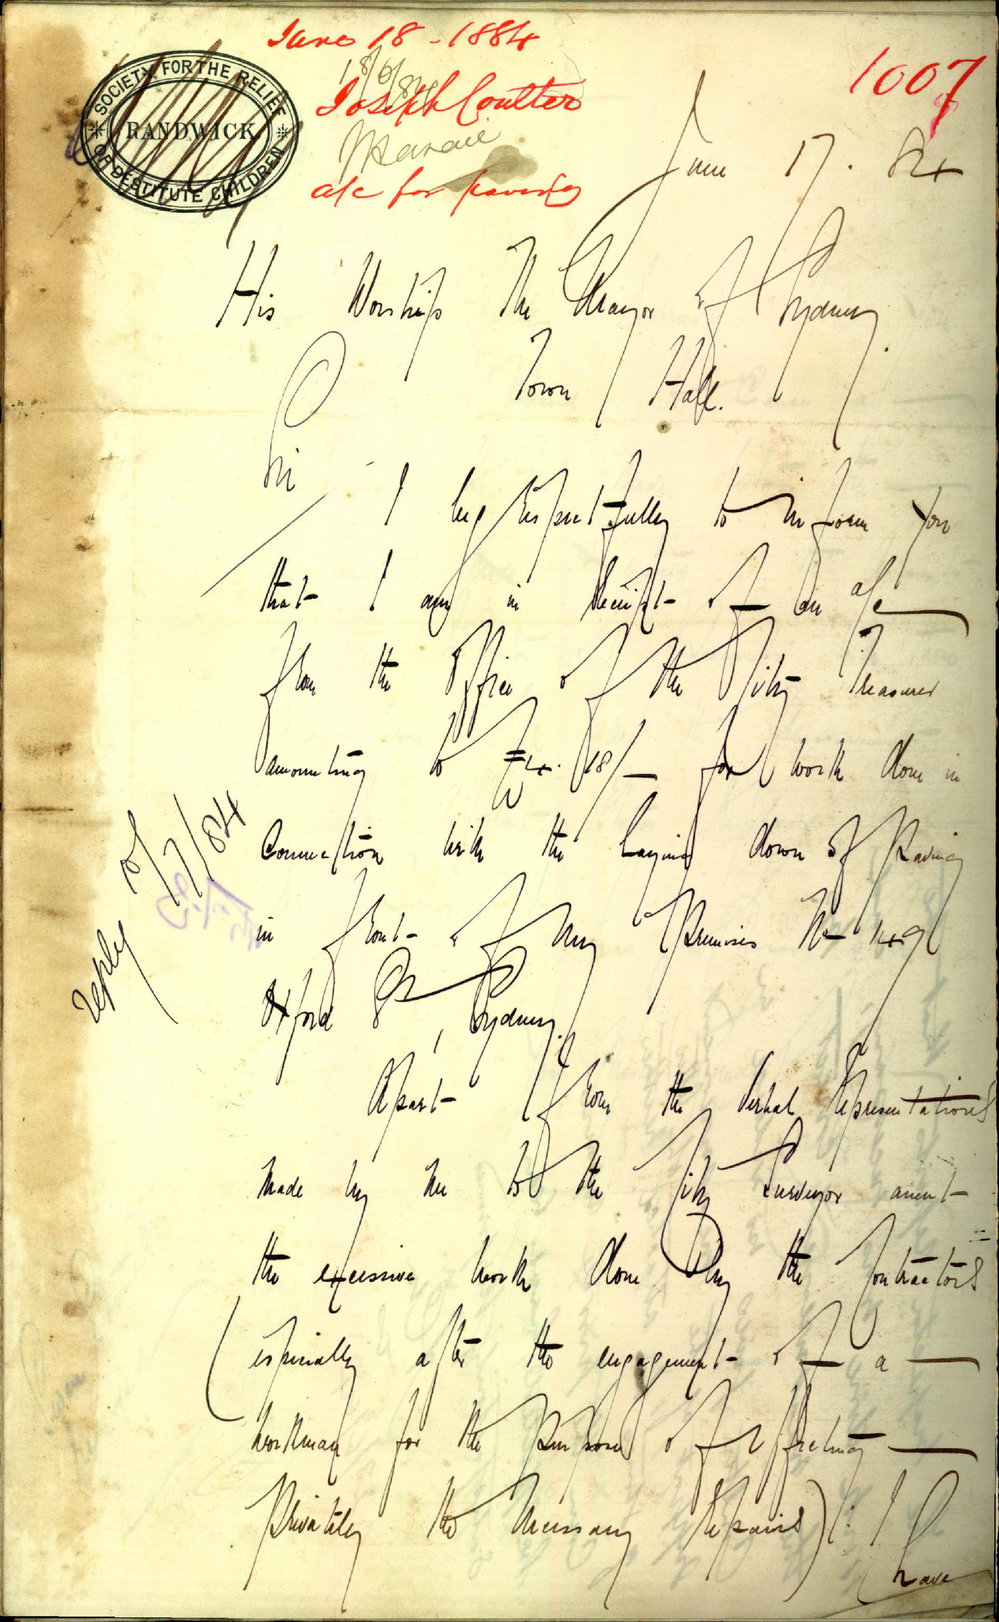 June 18 - 1884
18/6/84
1007
SOCIETY FOR THE RELIEF
RANDWICK
OF DESTITUTE CHILDREN
Joseph Coulter
a/c for paving
June 17. 84
His Worship The Mayor of Sydney
Town Hall.
Sir
I beg respectfully to inform you
that I am in Receipt of an a/c
from the Office of the City Treasurer
amounting to £4. 18/- for work done in
Connection with the Laying down of Paving
in front of my Premises No 149
Oxford St, Sydney.
reply 10/7/84
Apart from the Verbal Representations
Made by me to the City Surveyor anent
the excessive work done by the Contractors
(especially after the engagement of a
workman for the purpose of effecting
Privately the Necessary Repairs). I
have